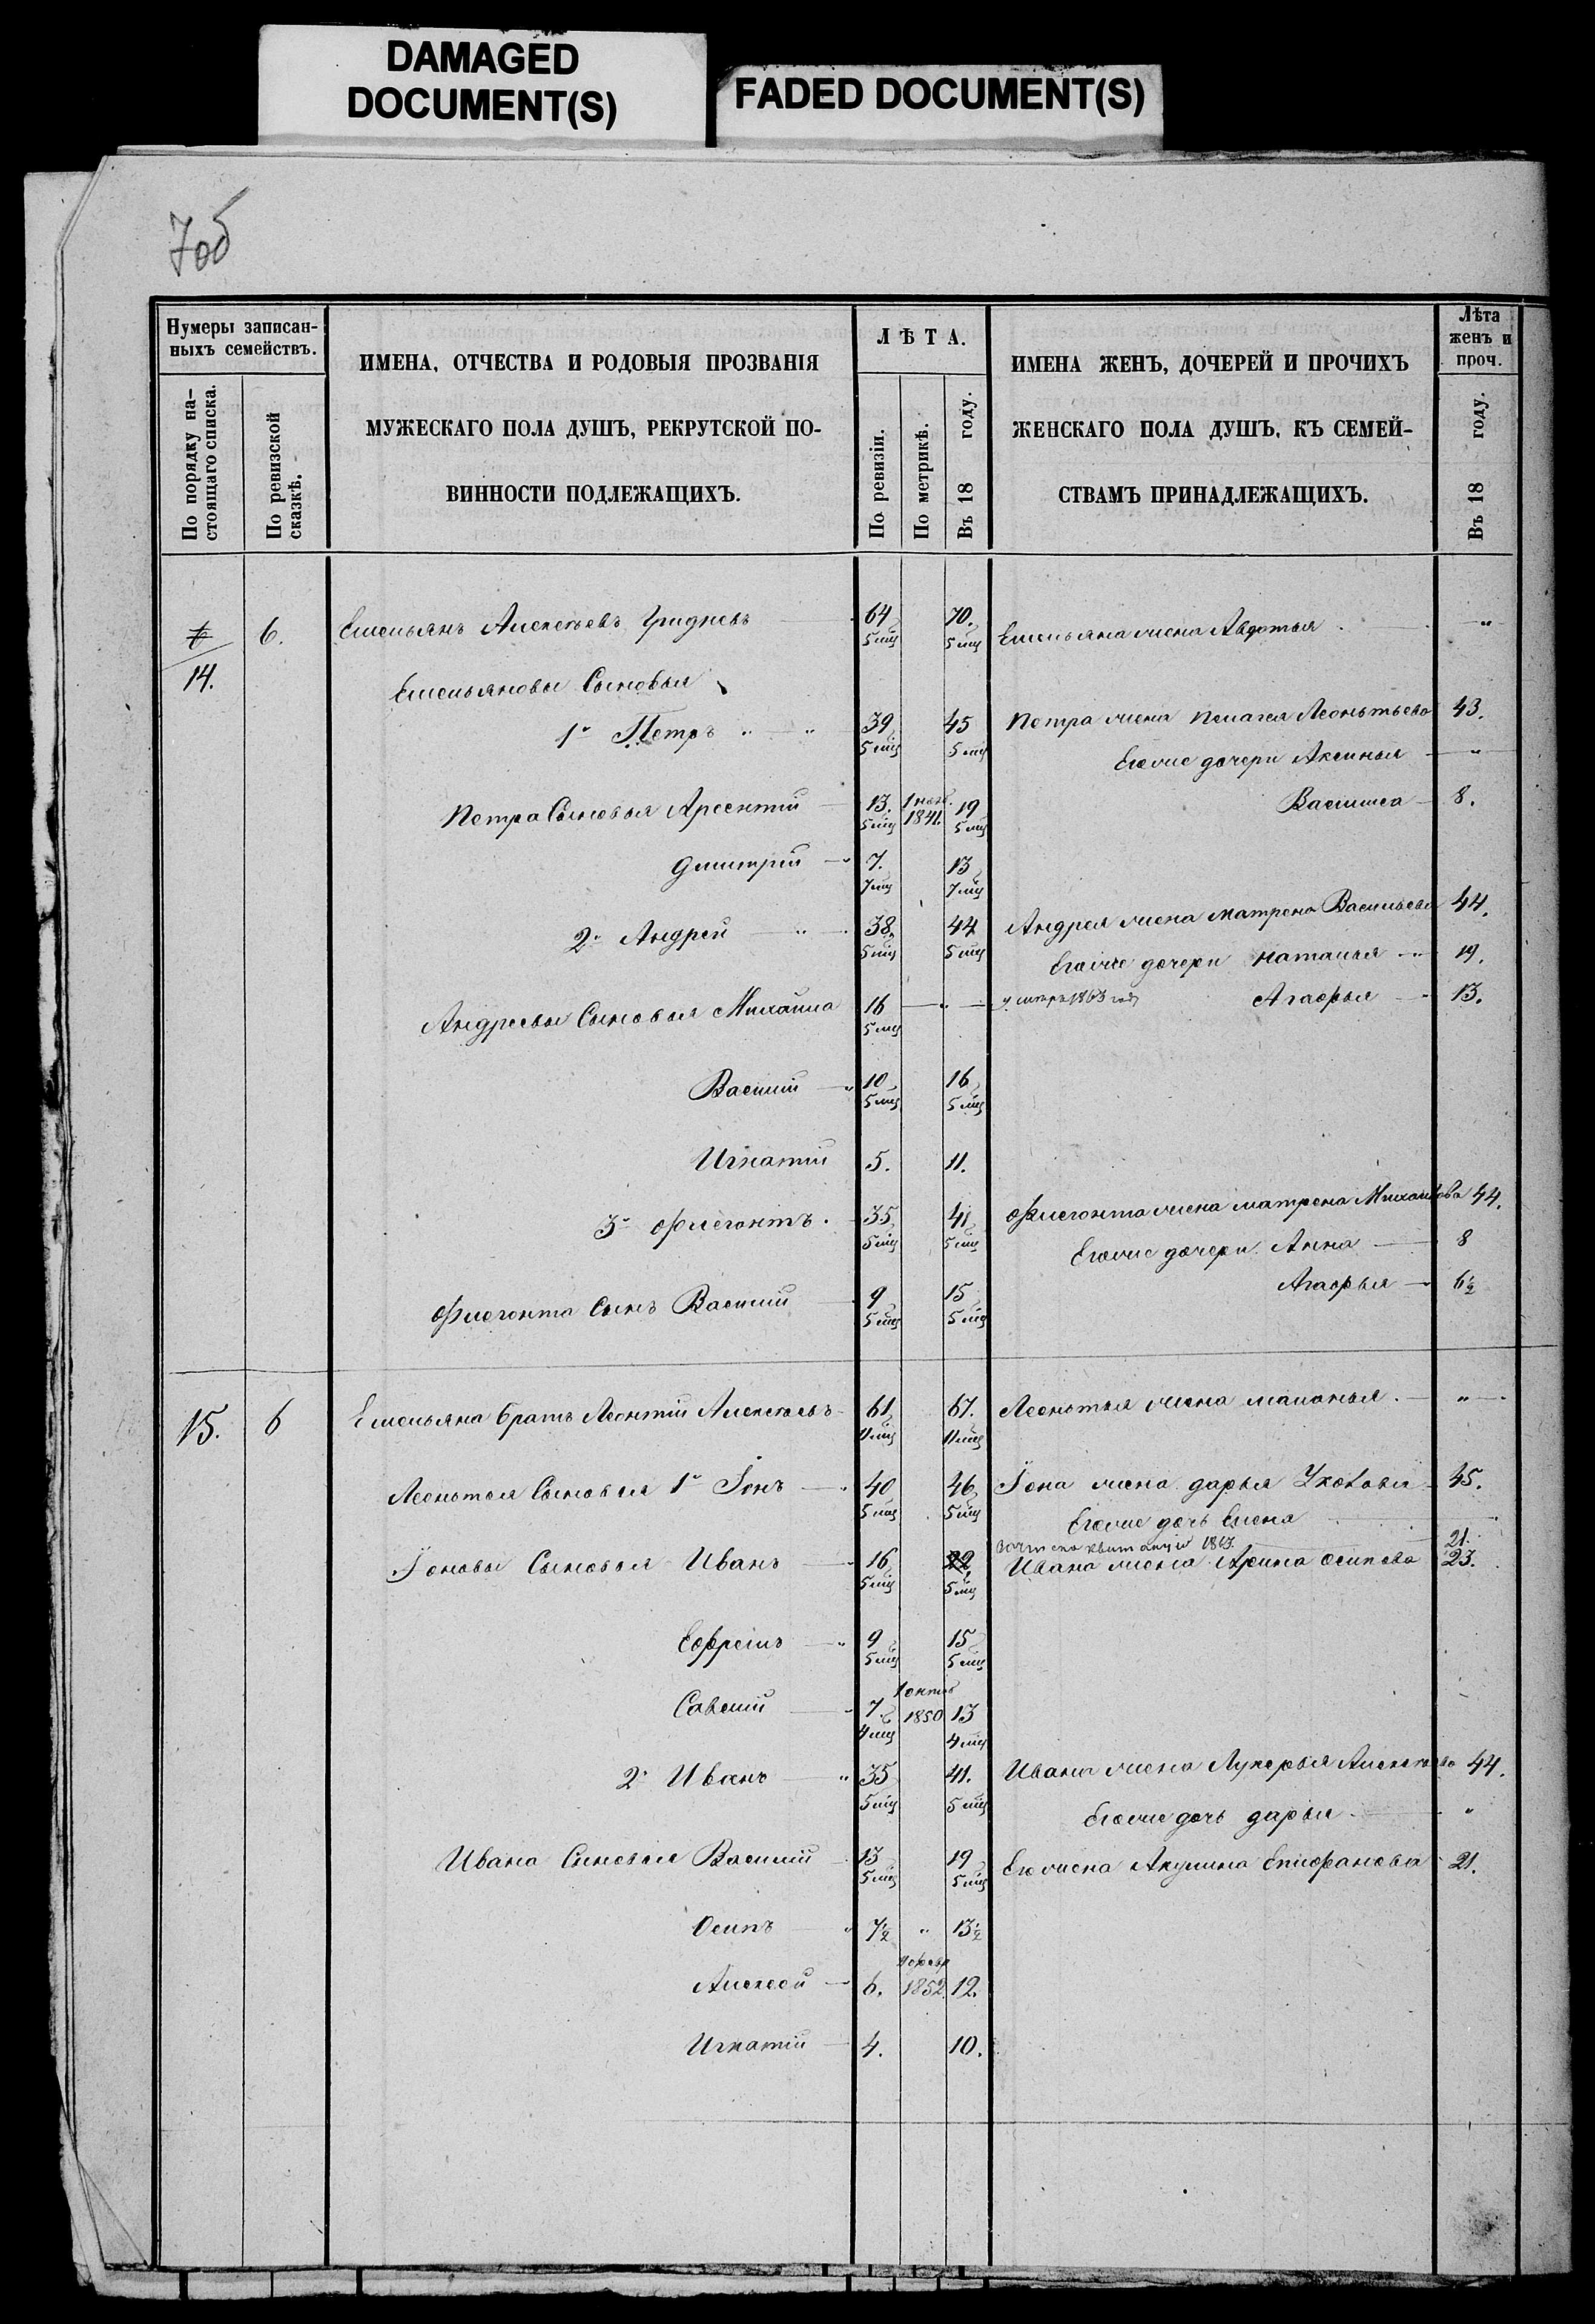 DAMAGED
DOCUMENT(S)
FADED DOCUMENT(S)
7об
Нумеры записан-
ныхъ семействъ.
По порядку на-
стоящаго списка.
По ревизской
сказкѣ.
ИМЕНА, ОТЧЕСТВА И РОДОВЫЯ ПРОЗВАНІЯ
МУЖЕСКАГО ПОЛА ДУШЪ, РЕКРУТСКОЙ ПО-
ВИННОСТИ ПОДЛЕЖАЩИХЪ.
ЛѢТА.
По ревизіи.
По метрикѣ.
Въ 18 году.
ИМЕНА ЖЕНЪ, ДОЧЕРЕЙ И ПРОЧИХЪ
ЖЕНСКАГО ПОЛА ДУШЪ, КЪ СЕМЕЙ-
СТВАМЪ ПРИНАДЛЕЖАЩИХЪ.
Лѣта
женъ и
проч.
Въ 18 году.
6 6. Емельянъ Алексѣевъ Гридневъ 64 5 мцъ 70. 5 мцъ Емельяна жена Авдотья "
14.
Емельяновы Сыновья
1й Петръ " " 39 5 мцъ 45 5 мцъ Петра жена Пелагея Леонтьева 43.
Его же дочери Аксинья "
Петра Сыновья Арсентій 13. 5 мцъ 1 нояб. 1841. 19 5 мцъ Василиса 8.
Дмитрій 7. 7 мцъ 13 7 мцъ
2й Андрей " 38 5 мцъ 44 5 мцъ Андрея жена Матрена Васильева 44.
Его же дочери Наталья 19.
Андреевы Сыновья Михайла 16 5 мцъ " умеръ 1863 году Агафья 13.
Василій 10 5 мцъ 16 5 мцъ
Игнатій 5. 11.
3й Флегонтъ. 35 5 мцъ 41 5 мцъ Флегонта жена Матрена Михайлова 44.
Его же дочери Анна 8
Агафья 6½
Флегонта Сынъ Василій 9 5 мцъ 15 5 мцъ
15. 6 Емельяна братъ Леонтій Алексѣевъ 61 11 мцъ 67. 11 мцъ Леонтья жена Маланья. "
Леонтья Сыновья 1й Іонъ 40 5 мцъ 46 5 мцъ Іона жена Дарья 45.
Его же дочь Елена
Іоновы Сыновья Иванъ 16 5 мцъ 22 5 мцъ квитанція 1863. 21.
Ивана жена Арина Осипова 23.
Ефремъ 9 5 мцъ 15 5 мцъ
Савелій 7 4 мцъ 1 октяб 1850 13 4 мцъ
2й Иванъ " 35 5 мцъ 41. 5 мцъ Ивана жена Лукерья Алексѣева 44.
Его же дочь Дарья "
Ивана Сыновья Василій 13 5 мцъ 19 5 мцъ Его жена Акулина Епифанова 21.
Осипъ 7½ " 13½
Алексѣй 6. февр 1852 12.
Игнатій 4. 10.